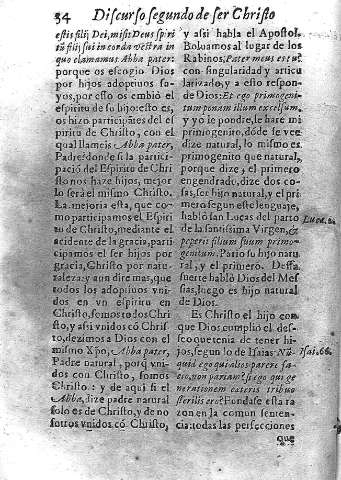 34 Discurso segundo de ser Christo
estis filij Dei, misit Deus spiri
tũ filij sui in corda vestra in
quo clamamus Abba pater:
porque os escogio Dios
por hijos adoptiuos su-
yos, por esto os embiò el
espiritu de su hijo: esto es,
os hizo participãtes del es
piritu de Christo, con el
qual llameis Abba pater,
Padre: donde si la partici-
pació del Espiritu de Chri
sto nos haze hijos, mejor
lo serà el mismo Christo.
La mejoria esta, que co-
mo participamos el Espiri
tu de Christo, mediante el
acidente de la gracia, parti
cipamos el ser hijos por
gracia, Christo por natu-
raleza: y aun dire mas, que
todos los adoptiuos vni-
dos en vn espiritu en
Christo, somos todos Chri
sto, y assi vnidos cõ Chris
to, dezimos a Dios con el
mismo Xpo, Abba pater,
Padre natural, porq̃ vni
dos con Christo, somos
Christo: y de aqui si el
Abba, dize padre natural
solo es de Christo, y de no
sotros vnidos cõ Christo,
y assi habla el Apostol.
Boluamos al lugar de los
Rabinos, Pater meus es tu:
con singularidad y articu
larizado, y a esto respon-
de Dios: Et ego primogeni-
tum ponam illum excelsum,
y yo le pondre, le hare mi
primogenito, dõde se vee
dize natural, lo mismo es
primogenito que natural,
porque dize, y el primero
engendrado, dize dos co-
sas, ser hijo natural, y el pri
mero segun este lenguaje,
hablò san Lucas del parto
de la santissima Virgen, &
peperit filium suum primo-
genitum. Pario su hijo natu
ral, y el primero. Dessa
suerte hablò Dios del Mes
sias, luego es hijo natural
de Dios.
Es Christo el hijo con
que Dios cumpliò el des-
seo que tenia de tener hi-
jos, segun lo de Isaias: Nū-
quid ego qui alios parere fa-
cio, non pariam? si ego qui ge
nerationem cæteris tribuo
sterilis ero? Fundase esta ra
zon en la comun senten-
cia: todas las perfecciones
que
Luc. 2.
Isai. 66.